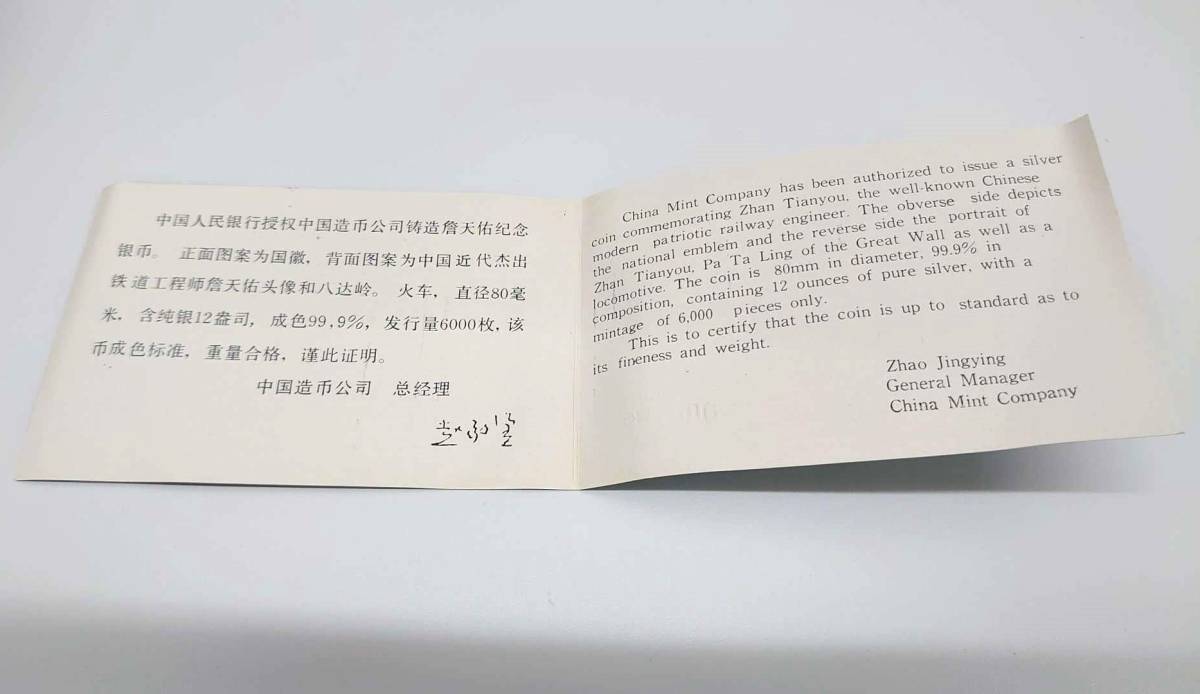 中国人民银行授权中国造币公司铸造詹天佑纪念
银币。 正面图案为国徽，背面图案为中国近代杰出
铁道工程师詹天佑头像和八达岭。 火车，直径80毫
米，含纯银12盎司，成色99.9%，发行量6000枚，该
币成色标准，重量合格，谨此证明。
中国造币公司 总经理
China Mint Company has been authorized to issue a silver
coin commemorating Zhan Tianyou, the well-known Chinese
modern patriotic railway engineer. The obverse side depicts
the national emblem and the reverse side the portrait of
Zhan Tianyou, Pa Ta Ling of the Great Wall as well as a
locomotive. The coin is 80mm in diameter, 99.9% in
composition, containing 12 ounces of pure silver, with a
mintage of 6,000 pieces only.
This is to certify that the coin is up to standard as to
its fineness and weight.
Zhao Jingying
General Manager
China Mint Company